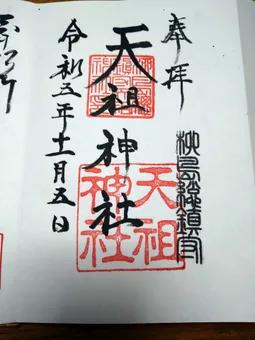 奉拝
柳島総鎮守
天祖神社
天祖
神社
令和五年十一月五日